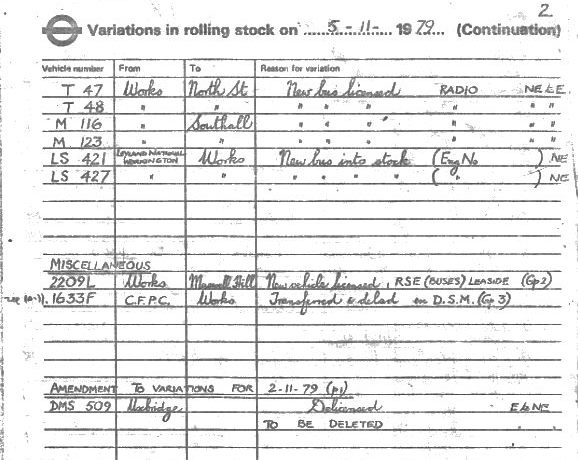 2
Variations in rolling stock on 5-11- 1979 (Continuation)
Vehicle number From To Reason for variation
T 47 Works North St New bus licensed RADIO NELE
T 48 " " " " " " " "
M 116 " Southall " " " " " "
M 123 " " " " " " " "
LS 421 LEYLAND NATIONAL WORKINGTON Works New bus into stock (Eng No ) NE
LS 427 " " " " " " ( " ) NE
MISCELLANEOUS
2209L Works Muswell Hill New vehicle licensed, RSE (BUSES) LEASIDE (Gp 2)
1633F C.F.P.C. Works Transferred & delsd on D.S.M. (Gp 3)
AMENDMENT TO VARIATIONS FOR 2-11-79 (p1)
DMS 509 Uxbridge Delicensed E&NE
TO BE DELETED